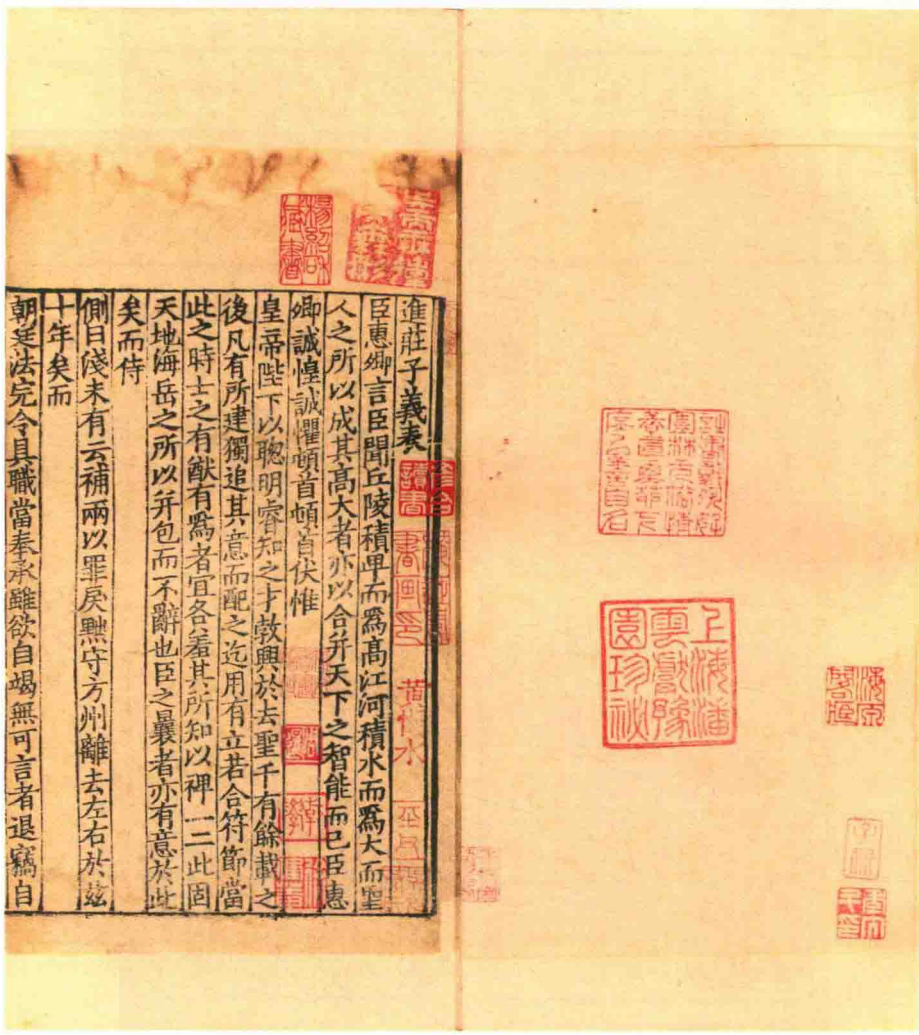 進莊子義表
臣惠卿言臣聞丘陵積卑而爲高江河積水而爲大而聖
人之所以成其高大者亦以合并天下之智能而已臣惠
卿誠惶誠懼頓首頓首伏惟
皇帝陛下以聰明睿知之才敦興於去聖千有餘載之
後凡有所建獨追其意而配之迄用有立若合符節當
此之時士之有猷有爲者宜各羞其所知以裨一二此固
天地海岳之所以并包而不辭也臣之曩者亦有意於此
矣而侍
側日淺未有云補兩以罪戾黜守方州離去左右於兹
十年矣而
朝廷法完令具職當奉承雖欲自竭無可言者退竊自
楊紹和
藏書
讀書
書画印
上海潘
雲獻豫
園珍祕